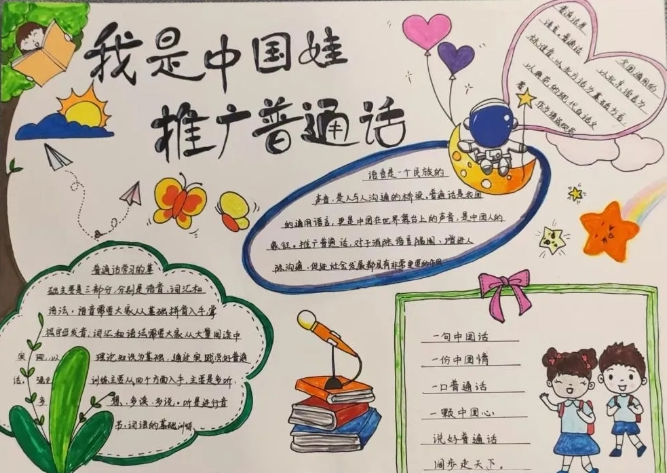 我是中国娃
推广普通话
语言是一个民族的
声音,是人与人沟通的桥梁,普通话是我国
的通用语言,更是中国在世界舞台上的声音,是中国人的
象征。推广普通话,对于消除语言隔阂,增进人
际沟通,促进社会发展都具有非常重要的作用
普通话学习的基
础主要是三部分,分别是语音,词汇和
语法。语音需要大家从基础拼音入手,掌
词汇和语法需要大家从大量阅读中
理论知识为基础,通过实践
训练主要从四个方面入手,主要是多听,
多读,多说。听是进行音
书,词语的基础训练
一句中国话
一份中国情
一口普通话
一颗中国心
说好普通话
阔步走天下。